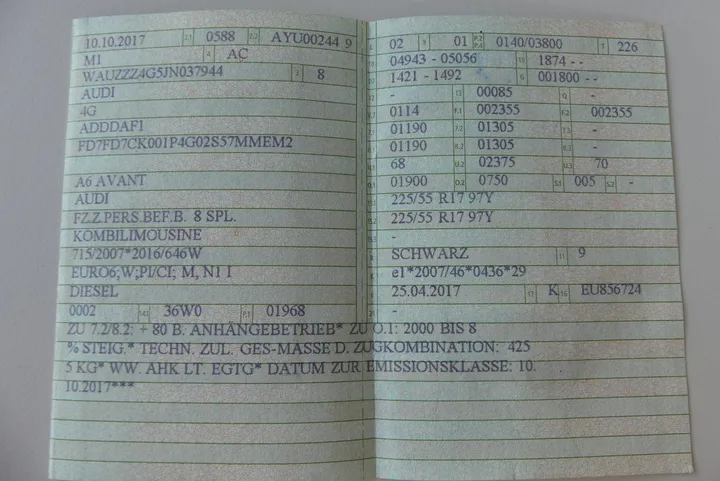 10.10.2017 2.1 0588 2.2 AYU00244 9
M1 4 AC
WAUZZZ4G5JN037944 3 8
AUDI
4G
ADDDAF1
FD7FD7CK001P4G02S57MMEM2
A6 AVANT
AUDI
FZ.Z.PERS.BEF.B. 8 SPL.
KOMBILIMOUSINE
715/2007*2016/646W
EURO6;W;PI/CI; M, N1 I
DIESEL
0002 14.1 36W0 P.1 01968
02 9 01 P.2 P.4 0140/03800 T 226
04943 - 05056 19 1874 - -
1421 - 1492 G 001800 - -
- 13 00085 Q -
0114 F.1 002355 F.2 002355
01190 7.2 01305 -
01190 8.2 01305 8.3 -
68 U.2 02375 U.3 70
01900 O.2 0750 S.1 005 S.2 -
225/55 R17 97Y
225/55 R17 97Y
-
SCHWARZ 11 9
e1*2007/46*0436*29
25.04.2017 17 K 16 EU856724
-
ZU 7.2/8.2: + 80 B. ANHÄNGEBETRIEB* ZU O.1: 2000 BIS 8
% STEIG.* TECHN. ZUL. GES-MASSE D. ZUGKOMBINATION: 425
5 KG* WW. AHK LT. EGTG* DATUM ZUR EMISSIONSKLASSE: 10.
10.2017***